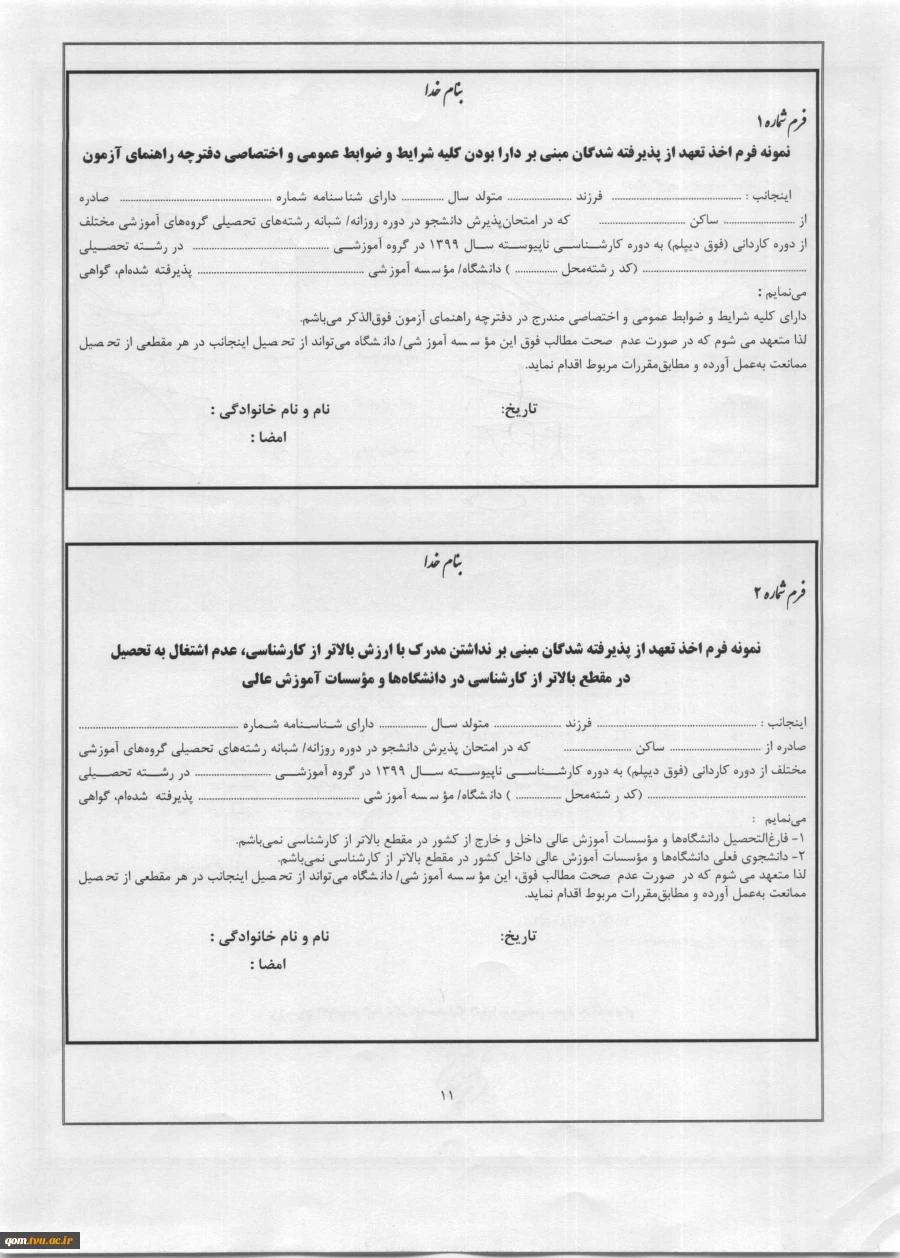 بنام خدا
فرم شماره ۱
نمونه فرم اخذ تعهد از پذیرفته شدگان مبنی بر دارا بودن کلیه شرایط و ضوابط عمومی و اختصاصی دفترچه راهنمای آزمون
اینجانب : ........................................ فرزند .................... متولد سال ............. دارای شناسنامه شماره ............................................... صادره
از ...................... ساکن ........................... که در امتحان پذیرش دانشجو در دوره روزانه/ شبانه رشته‌های تحصیلی گروه‌های آموزشی مختلف
از دوره کاردانی (فوق دیپلم) به دوره کارشناسی ناپیوسته سال ۱۳۹۹ در گروه آموزشی .......................................... در رشته تحصیلی
................................................... (کد رشته‌محل ............. ) دانشگاه/ مؤسسه آموزشی .................................................... پذیرفته شده‌ام، گواهی
می‌نمایم :
دارای کلیه شرایط و ضوابط عمومی و اختصاصی مندرج در دفترچه راهنمای آزمون فوق‌الذکر می‌باشم.
لذا متعهد می شوم که در صورت عدم صحت مطالب فوق این مؤسسه آموزشی/ دانشگاه می‌تواند از تحصیل اینجانب در هر مقطعی از تحصیل
ممانعت به‌عمل آورده و مطابق‌مقررات مربوط اقدام نماید.
تاریخ: نام و نام خانوادگی :
امضا :
بنام خدا
فرم شماره ۲
نمونه فرم اخذ تعهد از پذیرفته شدگان مبنی بر نداشتن مدرک با ارزش بالاتر از کارشناسی، عدم اشتغال به تحصیل
در مقطع بالاتر از کارشناسی در دانشگاه‌ها و مؤسسات آموزش عالی
اینجانب : .................................................. فرزند ..................... متولد سال ............... دارای شناسنامه شماره ..................................................
صادره از ............................ ساکن ..................... که در امتحان پذیرش دانشجو در دوره روزانه/ شبانه رشته‌های تحصیلی گروه‌های آموزشی
مختلف از دوره کاردانی (فوق دیپلم) به دوره کارشناسی ناپیوسته سال ۱۳۹۹ در گروه آموزشی ........................ در رشته تحصیلی
.................................................. (کد رشته‌محل .............. ) دانشگاه/ مؤسسه آموزشی .................................................. پذیرفته شده‌ام، گواهی
می‌نمایم :
۱- فارغ‌التحصیل دانشگاه‌ها و مؤسسات آموزش عالی داخل و خارج از کشور در مقطع بالاتر از کارشناسی نمی‌باشم.
۲- دانشجوی فعلی دانشگاه‌ها و مؤسسات آموزش عالی داخل کشور در مقطع بالاتر از کارشناسی نمی‌باشم.
لذا متعهد می شوم که در صورت عدم صحت مطالب فوق، این مؤسسه آموزشی/ دانشگاه می‌تواند از تحصیل اینجانب در هر مقطعی از تحصیل
ممانعت به‌عمل آورده و مطابق‌مقررات مربوط اقدام نماید.
تاریخ: نام و نام خانوادگی :
امضا :
۱۱
qom.tvu.ac.ir